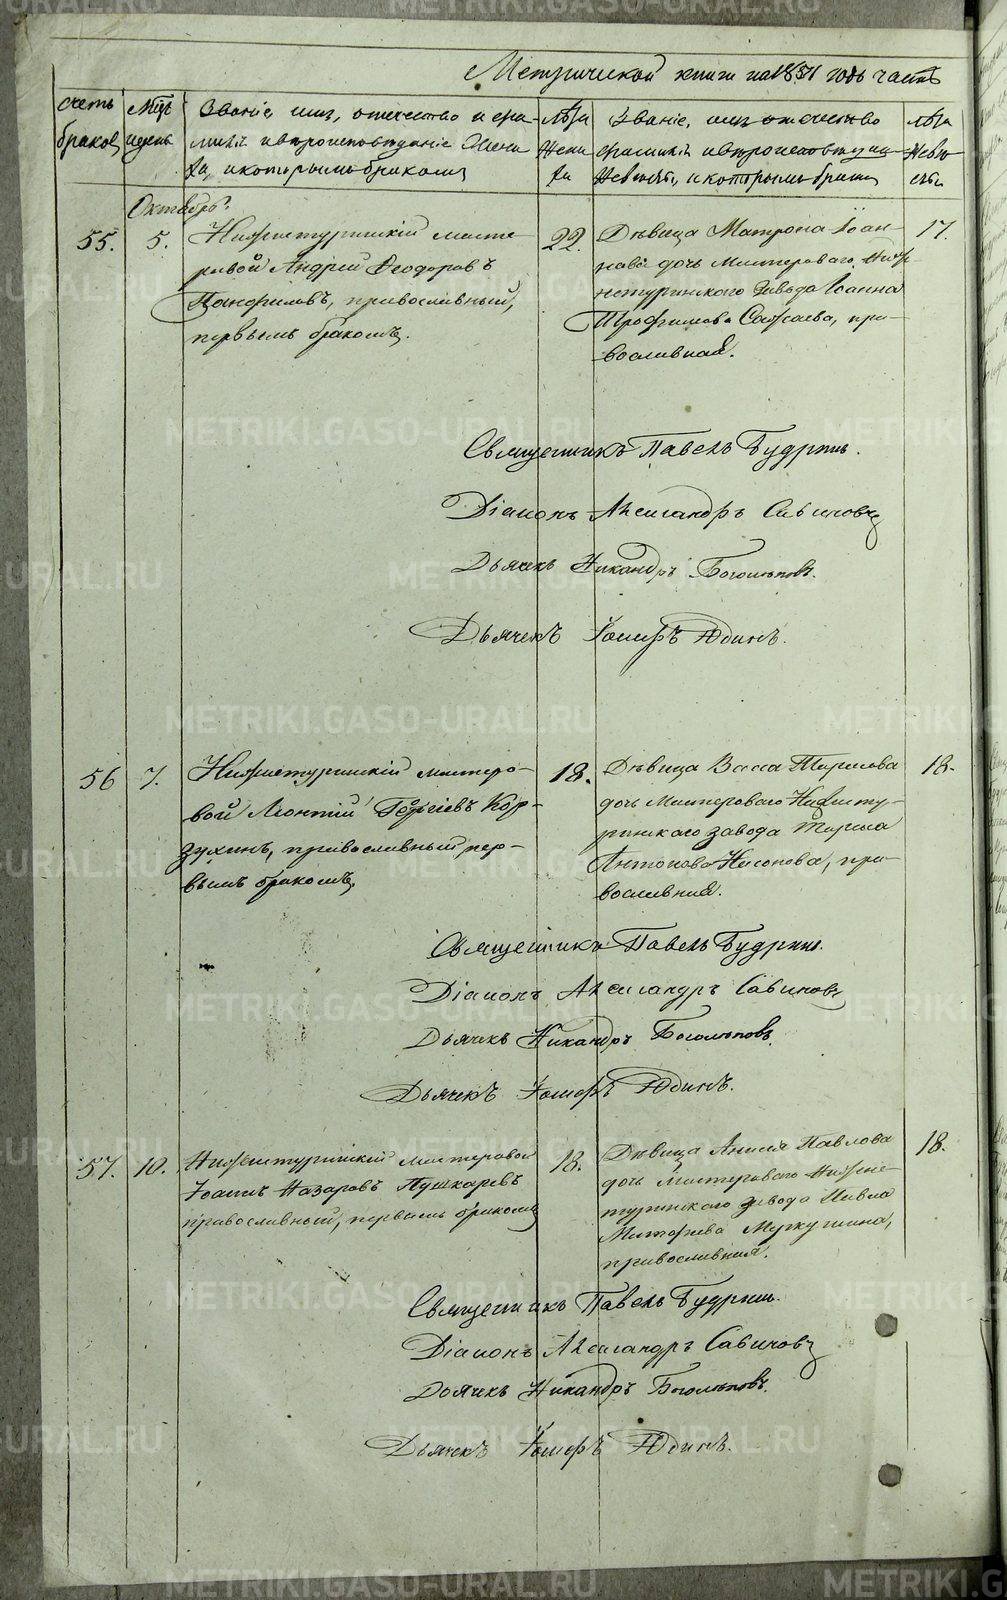 Метрической книги на 1851 годъ часть
Счетъ браковъ
Мѣсяцъ и день
Званіе, имя, отечество и фамилія и вѣроисповѣданіе жениха, и которымъ бракомъ
Лѣта жениха
Званіе, имя отечество фамилія и вѣроисповѣданіе невѣсты, и которымъ бракомъ
Лѣта невѣсты
Октябрь.
55.
5.
Нижнетуринскій масте-
ровой Андрей Ѳеодоровъ
Панфиловъ, православный,
первымъ бракомъ.
22.
Дѣвица Матрона Іоан-
нова дочь мастероваго Ниж-
нетуринского завода Іоанна
Трофимова, пра-
вославная.
17.
Священникъ Павелъ Будринъ.
Діаконъ Александръ Савиновъ
Дьячекъ Никандръ Боголѣповъ.
Дьячекъ Іосифъ Юдинъ.
56
7.
Нижнетуринскій мастеро-
вой Леонтій Георгіевъ Кор-
зухинъ, православный пер-
вымъ бракомъ.
18.
Дѣвица Васса Тарасова
дочь мастероваго Нижнету-
ринскаго завода Тараса
Антонова, пра-
вославная.
18.
Священникъ Павелъ Будринъ.
Діаконъ Александръ Савиновъ
Дьячекъ Никандръ Боголѣповъ
Дьячекъ Іосифъ Юдинъ.
57.
10.
Нижнетуринскій мастеровой
Іоаннъ Назаровъ Пушкаревъ
православный, первымъ бракомъ
18.
Дѣвица Анисія Павлова
дочь мастероваго Нижне-
туринскаго завода Павла
православная.
18.
Священникъ Павелъ Будринъ.
Діаконъ Александръ Савиновъ
Дьячекъ Никандръ Боголѣповъ.
Дьячекъ Іосифъ Юдинъ.
METRIKI.GASO-URAL.RU